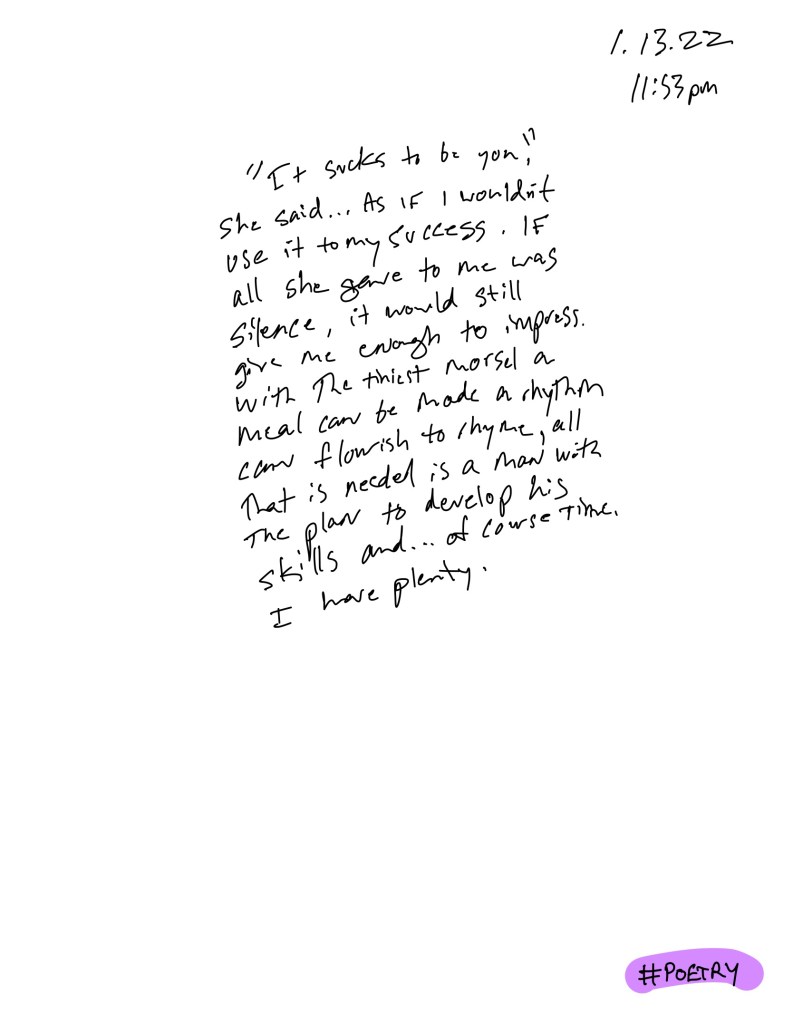 1.13.22
11:53pm
"It sucks to be you,"
she said... As IF I wouldn't
use it to my success. IF
all she gave to me was
silence, it would still
give me enough to impress.
with The tiniest morsel a
meal can be made a rhythm
can flourish to rhyme, all
That is needed is a man with
The plan to develop his
skills and... of course time.
I have plenty.
#POETRY